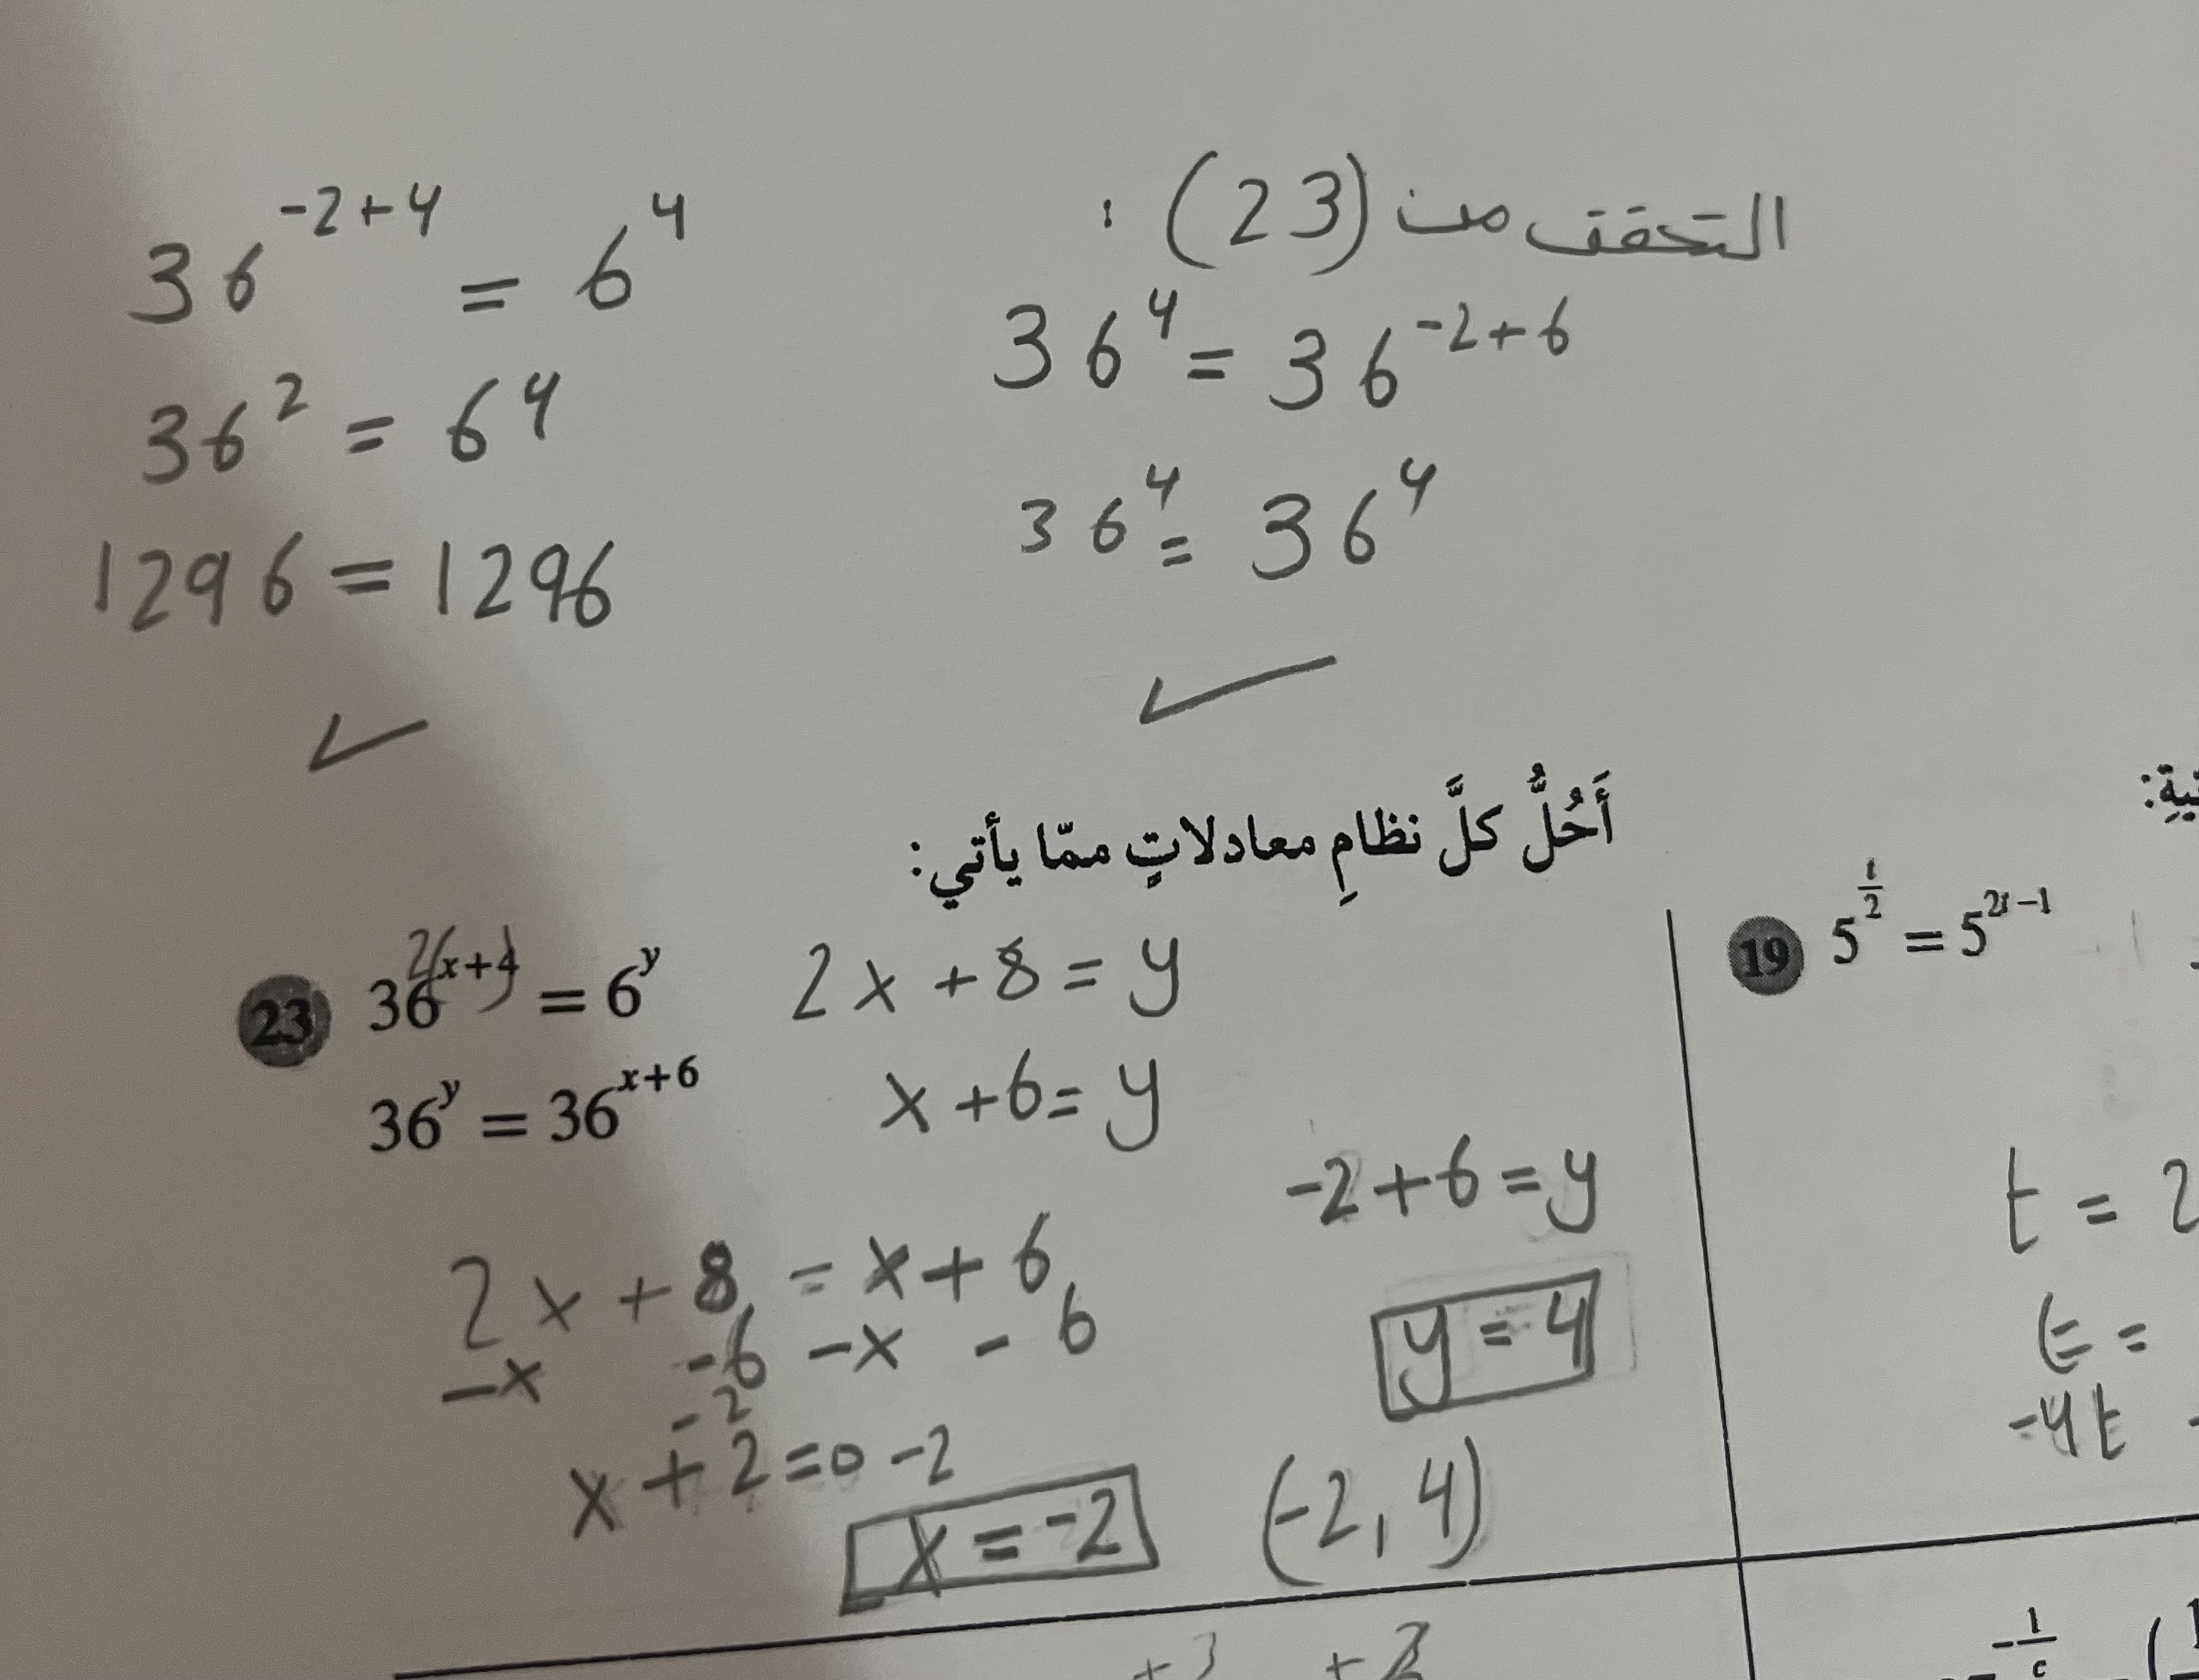 التحقق من (23) :
36^4 = 36^{-2+6}
36^4 = 36^4
✓
36^{-2+4} = 6^4
36^2 = 6^4
1296 = 1296
✓
أَحُلُّ كلَّ نظامِ معادلاتٍ ممّا يأتي:
23 36^{2(x+4)} = 6^y 2x + 8 = y
36^y = 36^{x+6} x + 6 = y
-2 + 6 = y
2x + 8 = x + 6
-x -6 -x - 6
y = 4
-2
x + 2 = 0 -2
x = -2 (-2, 4)
19 5^{\frac{t}{2}} = 5^{2t-1}
t = 2
-4t
+3 +2